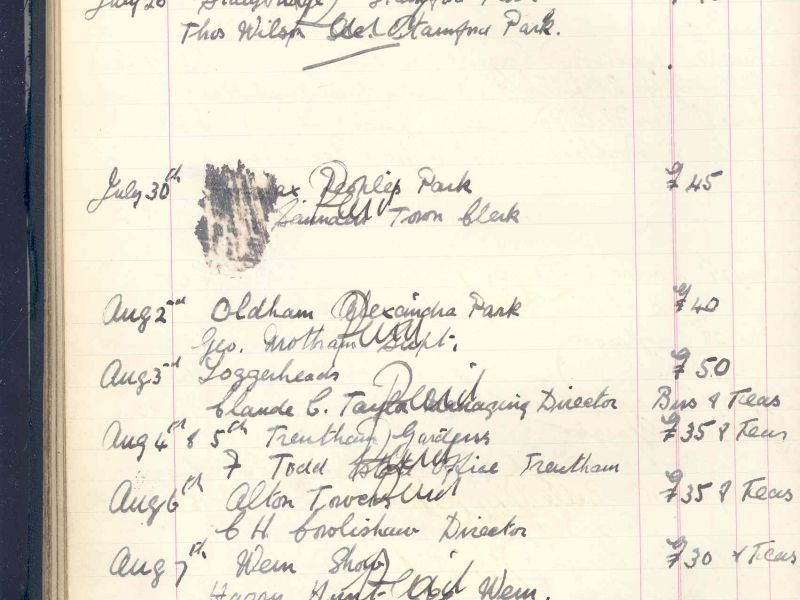 July 26 Stalybridge Stamford Park
Thos Wilson Sec. Stamford Park.
July 30th ax Peoples Park £45
Saunders Town Clerk
Aug 2nd Oldham Alexandra Park £40
Geo. Mottram Supt.
Aug 3rd Loggerheads £50
Claude C. Taylor Managing Director Bus & Teas
Aug 4th & 5th Trentham Gardens £35 & Teas
F Todd Estate Office Trentham
Aug 6th Alton Towers £35 & Teas
C H Cowlishaw Director
Aug 7th Wem Show £30 & Teas
Harry Hunt Wem.